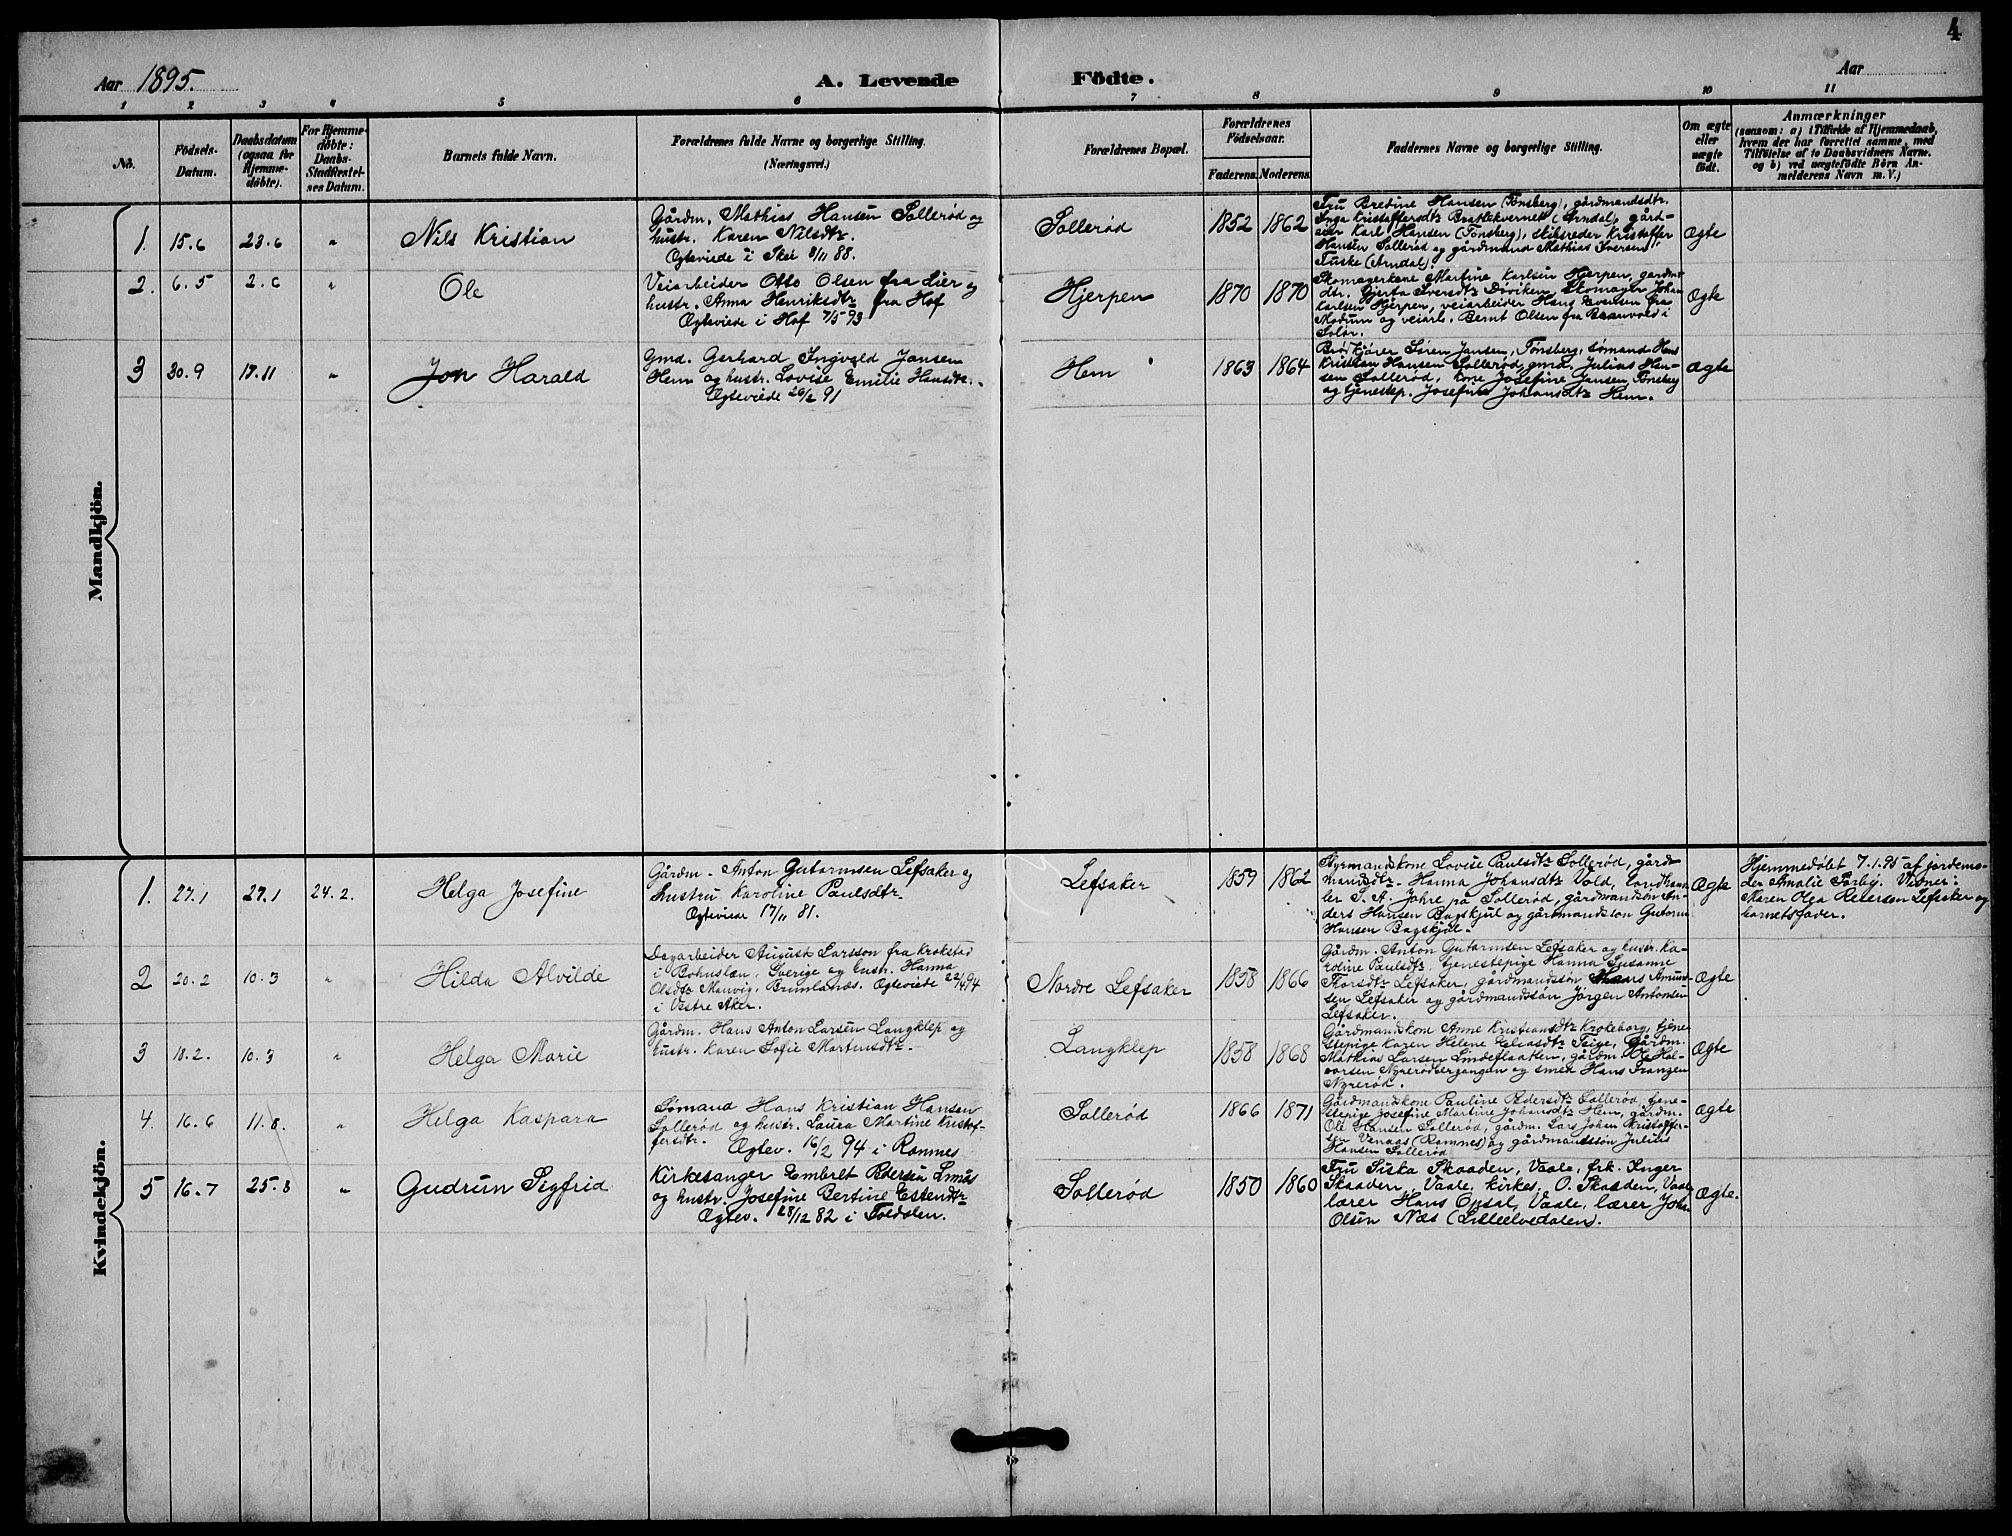 4
Aar 1895.
A. Levende Födte.
Aar
1 2 3 4 5 6 7 8 9 10 11
No.
Födsels-
Datum.
Daabsdatum
(ogsaa for
Hjemme-
døbte).
For Hjemme-
døbte:
Daabs-
Stadfæstel-
ses Datum.
Barnets fulde Navn.
Forældrenes fulde Navne og borgerlige Stilling.
(Næringsvei.)
Forældrenes Bopæl.
Forældrenes
Födselsaar.
Faderens.
Moderens.
Faddernes Navne og borgerlige Stilling.
Om ægte
eller
uægte
født.
Anmærkninger
(saasom: a) i Tilfælde af Hjemmedaab,
hvem der har forrettet samme, med
Tilföielse af to Daabsvidners Navne,
og b) ved uægtefödte Börn An-
melderens Navn m. V.)
Mandkjön.
1. 15.6 23.6 "
Nils Kristian
Gårdm. Mathias Hansen Sollerød og
hustr. Karen Nilsdtr.
Ægteviede i Sker 8/11 88.
Sollerød
1852 1862
Fru Bredine Hansen (Tønsberg), gårdmandsdtr.
Inga Kristoffersdtr Brattekvernet (Arndal), gård-
eier Karl Hansen (Tønsberg), skibsreder Kristoffer
Hansen Sollerød og gårdmand Mathias Iversen
Tuske (Arndal).
Ægte
2. 6.5 2.6 "
Ole
Veiarbeider Otto Olsen fra Lier og
hustr. Anna Henriksdtr fra Hof
Ægteviede i Hof 7/5 93
Hjerpen
1870 1870
Skomagerkone Martine Karlsen Hjerpen, gårdm-
dtr. Gjerta Iversdtr Døviken, Skomager Johan
Karlsen Hjerpen, veiarbeider Hans Evensen fra
Modum og veiarb. Bernt Olsen fra Branvold i
Solør.
Ægte
3 30.9 17.11 "
Jon Harald
Gmd. Gerhard Ingvald Jansen
Hem og hustr. Lovise Emilie Hansdtr.
Ægteviede 26/2 91
Hem
1863 1864
Brødkjører Søren Jansen, Tønsberg, sømand Hans
Kristian Hansen Sollerød, gmd. Julius Han-
sen Sollerød, kone Josefine Jansen, Tønsberg
og tjenestep. Josefine Johansdtr Hem.
Ægte
Kvindekjön.
1. 27.1 27.1 24.2.
Helga Josefine
Gårdm. Anton Gutormsen Lefsaker og
hustru Karoline Paulsdtr.
Ægteviede 17/11 81.
Lefsaker
1859 1862
Styrmandskone Lovise Paulsdtr Sollerød, gård-
mandsdtr. Hanna Johansdtr Vold, landhand-
ler S. A. Jahre på Sollerød, gårdmandsøn An-
ders Hansen Bagskjul og gårdmandsøn Gutorm
Hansen Bagskjul.
Ægte
Hjemmedøbt 7.1.95 af jordemo-
der Amalie Sørby. Vidner:
Karen Olga Petersen Lefsaker og
barnets faver.
2 20.2 10.3 "
Hilda Alvilde
Dagarbeider August Larsson fra Krokstad
i Bohuslæn, Sverige og hustr. Hanna
Olsdtr Manvig, Brunlanæs. Ægteviede 22/4 94
i Vestre Aker.
Nordre Lefsaker
1858 1866
Gårdm. Anton Gutormsen Lefsaker og hustr. Ka-
roline Paulsdtr, tjenestepige Hanna Susanne
Thorsdtr Lefsaker, gårdmandssøn Hans Amund-
sen Lefsaker og gårdmandssøn Jørgen Antonsen
Lefsaker.
Ægte
3 18.2. 10.3 "
Helga Marie
Gårdm. Hans Anton Larsen Langklep og
hustr. Karen Sofie Martinsdtr.
Langklep
1858 1868
Gårdmandskone Anne Kristiansdtr Krokeborg, tjene-
stepige Karen Helene Eliasdtr Teige, Gårdm.
Mathias Larsen Lindeflaaten, gårdm. Ole Hal-
vorsen Nyrerødbergangan og smed Hans Franzen
Nyrerød.
Ægte
4. 16.6 11.8. "
Helga Kaspara
Sømand Hans Kristian Hansen
Sollerød og hustr. Laura Martine Kristof-
fersdtr. Ægtev. 16/2 94 i Ramnes
Sollerød
1866 1871
Gårdmandskone Pauline Pedersdtr Sollerød, tjene-
stepige Josefine Martine Johansdtr Hem, gårdm.
Ole Hansen Sollerød, gårdm. Lars Johan Kristoffer-
sen Venaas (Ramnes) og gårdmandssøn Julius
Hansen Sollerød
Ægte
5 16.7 25.8 "
Gudrun Sigfrid
Kirkesanger Embret Pedersen Imnes
og hustr. Josefine Bertine Estendtr
Ægtev. 28/12 82 i Foldalen.
Sollerød
1850 1860
Fru Siska Skaaden, Vaale, frk. Inger
Skaaden, Vaale, kirkes. O. Skaaden, Vaale
lærer Hans Opsal, Vaale, lærer Johan
Olsen Næs (Lilleelvedalen).
Ægte.